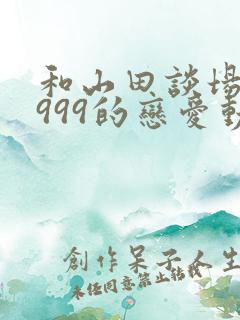 和山田談場
999的戀愛動
創作呆子人生
未經同意禁止轉載